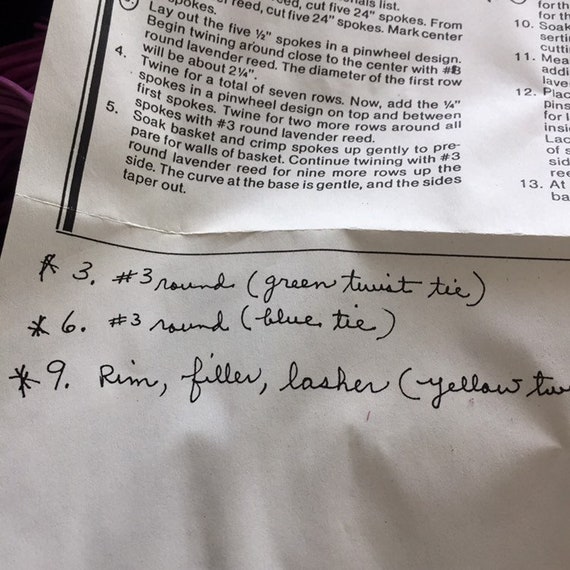 ials list.
reed, cut five 24" spokes. From
spokes.
reed, cut five 24" spokes. Mark center
Lay out the five ½" spokes in a pinwheel design.
Begin twining around close to the center with #3
round lavender reed. The diameter of the first row
will be about 2¼".
4. Twine for a total of seven rows. Now, add the ¼"
spokes in a pinwheel design on top and between
first spokes. Twine for two more rows around all
spokes with #3 round lavender reed.
5. Soak basket and crimp spokes up gently to pre-
pare for walls of basket. Continue twining with #3
round lavender reed for nine more rows up the
side. The curve at the base is gentle, and the sides
taper out.
for th
10. Soak
serti
cutti
11. Mea
addi
lave
12. Plac
Pins
for l
insi
Lac
of s
sid
ree
13. At
ba
* 3. #3 round (green twist tie)
* 6. #3 round (blue tie)
* 9. Rim, filler, lasher (yellow tw